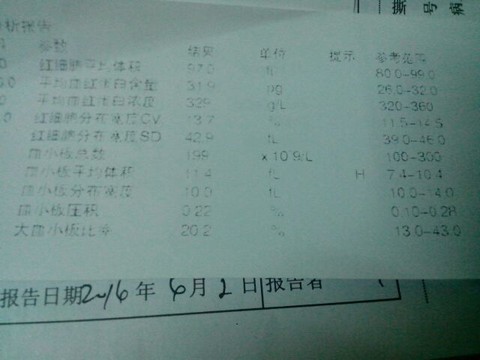 撕 号 病
析报告
参数 结果 单位 提示 参考范围
红细胞平均体积 97.0 fL 80.0-99.0
平均血红蛋白含量 31.9 pg 26.0-32.0
平均血红蛋白浓度 329 g/L 320-360
红细胞分布宽度CV 13.7 % 11.5-14.5
红细胞分布宽度SD 42.9 fL 39.0-46.0
血小板总数 199 x 10^9/L 100-300
血小板平均体积 11.4 fL H 7.4-10.4
血小板分布宽度 10.0 fL 10.0-14.0
血小板压积 0.22 % 0.10-0.28
大血小板比率 20.2 % 13.0-43.0
报告日期2016年6月2日 报告者